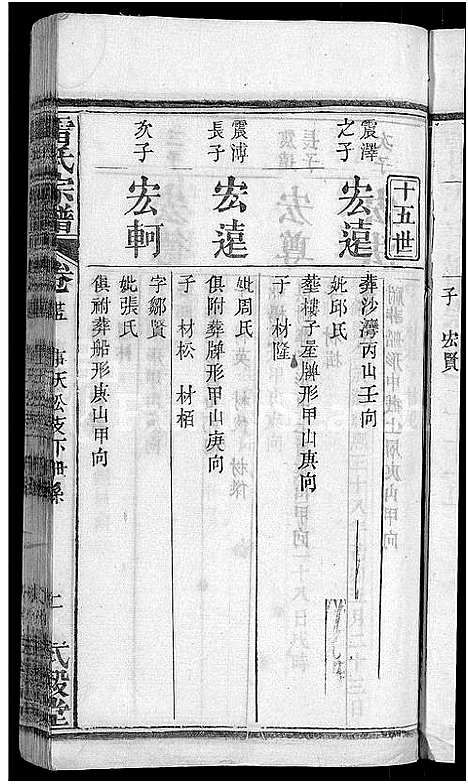 子 宏賢
十五世
震澤之子
宏遠
葬沙灣丙山壬向
妣邱氏
葬樓子屋牌形甲山庚向
子 材隆
震溥長子
宏遠
妣周氏
俱附葬牌形甲山庚向
子 材松 材栢
次子
宏軻
字鄒賢
妣張氏
俱祔葬船形庚山甲向
雷氏宗譜
卷